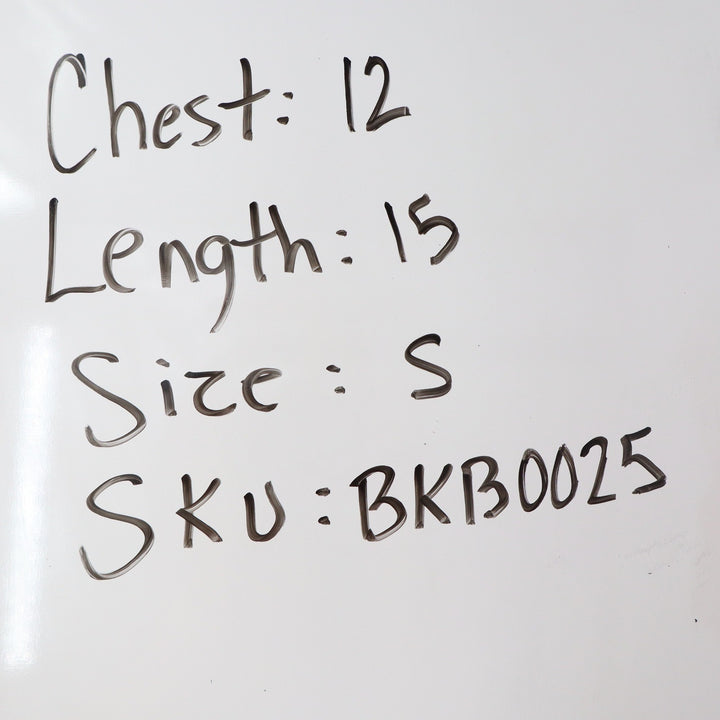 Chest: 12
Length: 15
Size: S
SKU: BKB0025